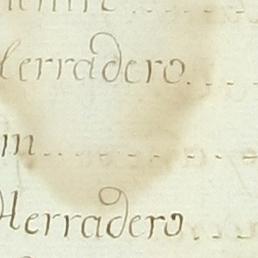 Herradero
m
Herradero